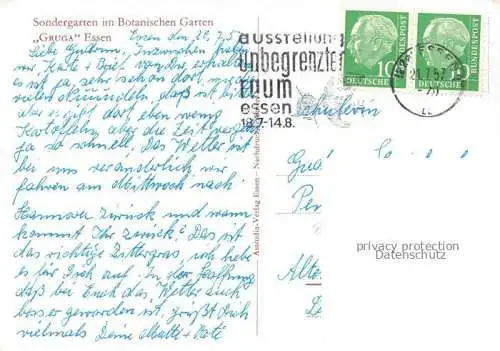 Sondergarten im Botanischen Garten
„GRUGA" Essen
Essen den 20.7.5
Liebe Gudrun, Inzwischen
Karte + Brief erhalten
es ist ja sehr schön dort
vielen daß ist
aber es gibt dort eben wenig
Kartoffeln, aber die Zeit vergeht
ja so schnell. Das Wetter ist
bei uns veränderlich wir
fahren am Mittwoch nach
Hannover zurück und wann
kommt Ihr zurück? Das ist
das richtige Zittergras, ich hebe
es für Dich auf. In der Hoffnung
daß bei Euch das Wetter auch
besser geworden ist, grüßt Dich
vielmals Deine + Kete
Assindia-Verlag Essen - Nachdruck
ausstellung
unbegrenzter
raum
essen
18.7-14.8.
10
DEUTSCHE
BUNDESPOST
DEUTSCHE
BUNDESPOST
ESSEN
Schülerin
Gud
Pe
Alte
privacy protection
Datenschutz